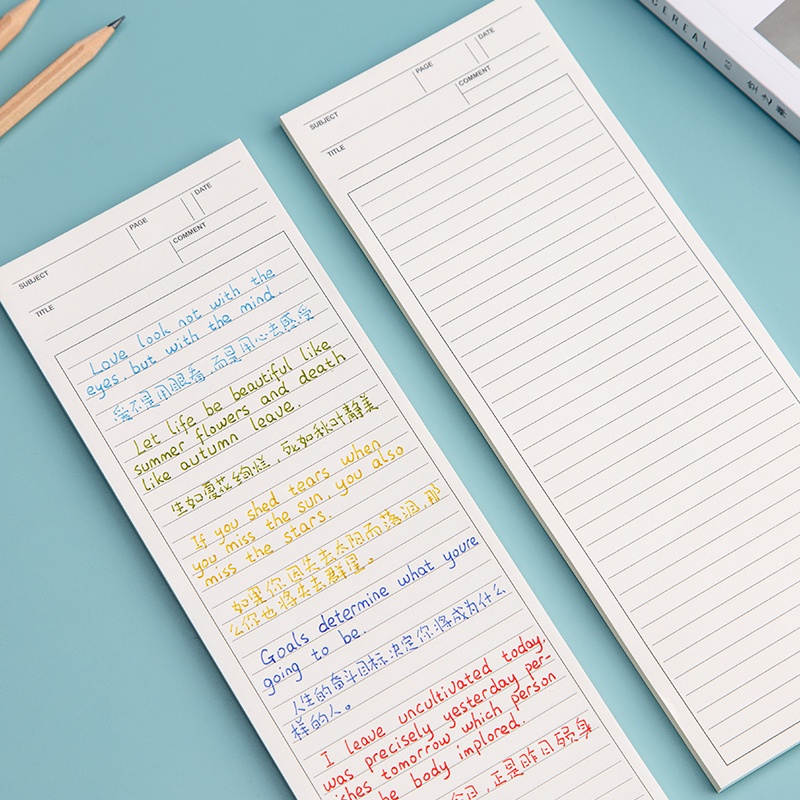 SUBJECT
PAGE
DATE
COMMENT
TITLE
Love look not with the
eyes, but with the mind.
爱不是用眼看,而是用心去感受
Let life be beautiful like
summer flowers and death
like autumn leave.
生如夏花绚烂,死如秋叶静美
If you shed tears when
you miss the sun, you also
miss the stars.
如果你因失去太阳而落泪,那
么你也将失去群星。
Goals determine what youre
going to be.
人生的奋斗目标决定你将成为什么
样的人。
I leave uncultivated today,
was precisely yesterday per-
ishes tomorrow which person
he body implored.
正是昨日殒身
SUBJECT
PAGE
DATE
COMMENT
TITLE
CEREAL